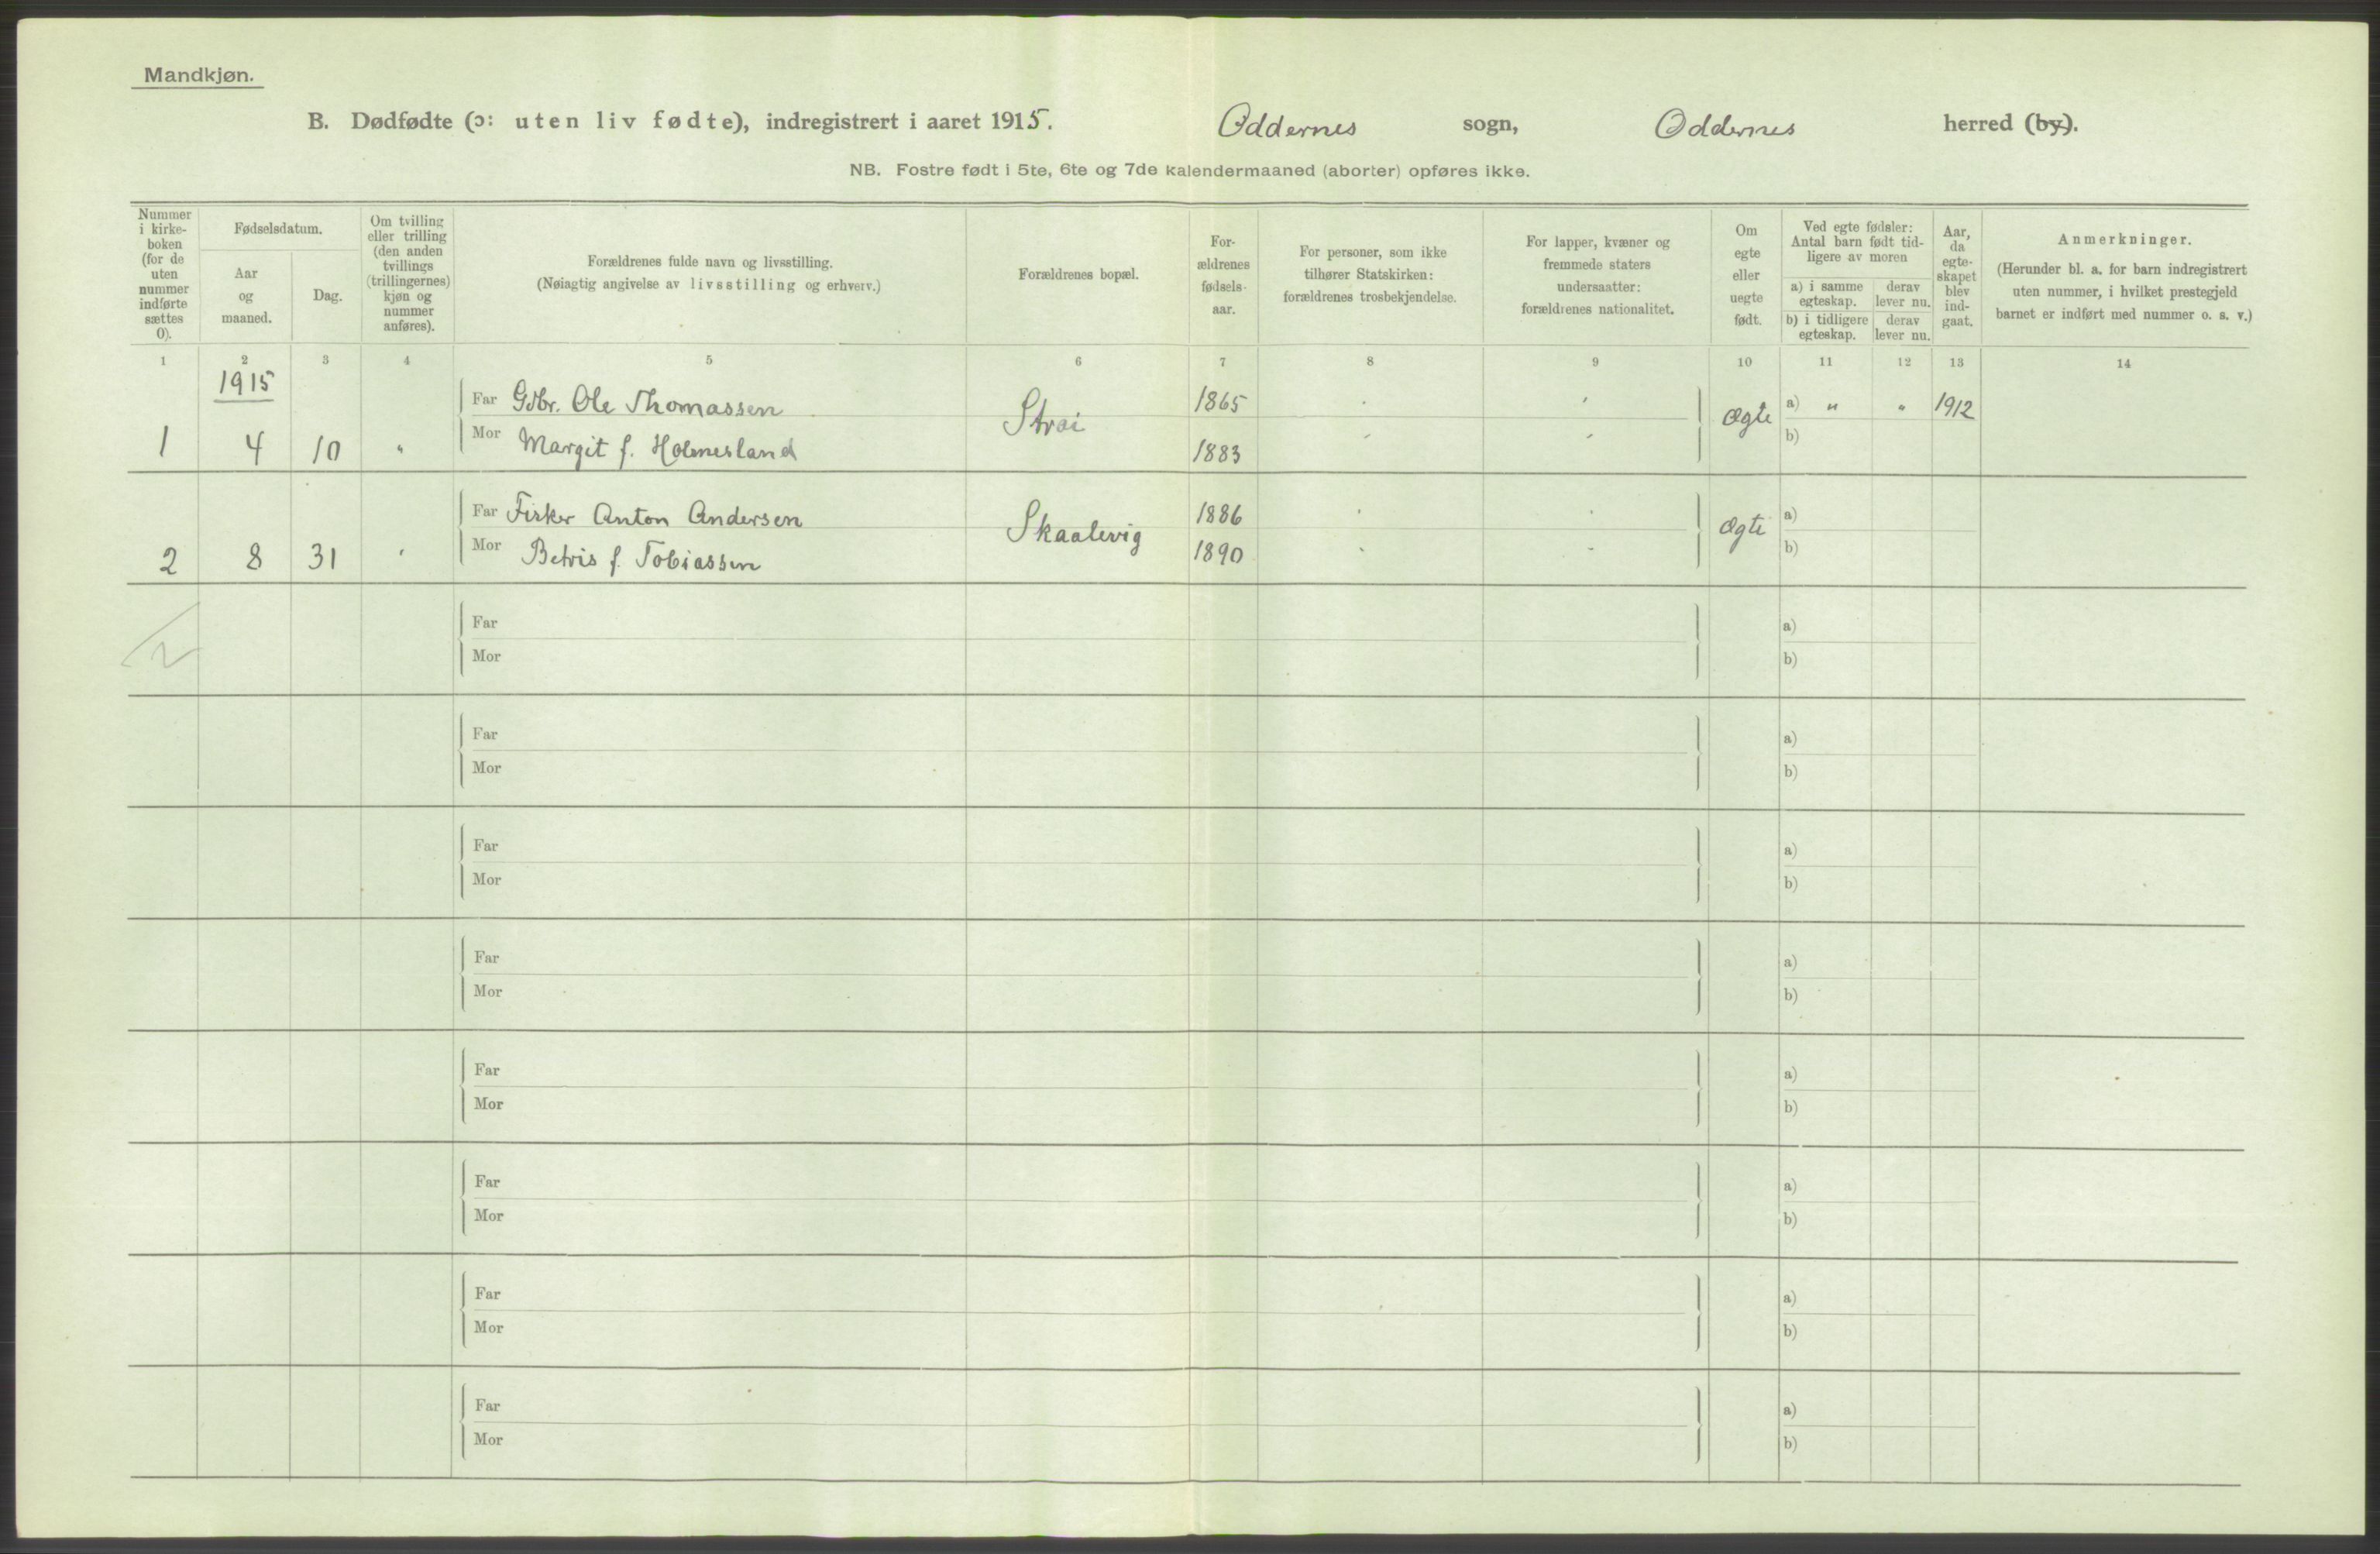 Mandkjøn.
B. Dødfødte (ɔ: uten liv fødte), indregistrert i aaret 1915. Oddernes sogn, Oddernes herred (by).
NB. Fostre født i 5te, 6te og 7de kalendermaaned (aborter) opføres ikke.
Nummer i kirke-boken (for de uten nummer indførte sættes 0).
Fødselsdatum.
Aar og maaned.
Dag.
Om tvilling eller trilling (den anden tvillings (trillingernes) kjøn og nummer anføres).
Forældrenes fulde navn og livsstilling.
(Nøiagtig angivelse av livsstilling og erhverv.)
Forældrenes bopæl.
For-ældrenes fødsels-aar.
For personer, som ikke tilhører Statskirken: forældrenes trosbekjendelse.
For lapper, kvæner og fremmede staters undersaatter: forældrenes nationalitet.
Om egte eller uegte født.
Ved egte fødsler: Antal barn født tid-ligere av moren
a) i samme egteskap.
derav lever nu.
b) i tidligere egteskap.
derav lever nu.
Aar, da egte-skapet blev ind-gaat.
Anmerkninger.
(Herunder bl. a. for barn indregistrert uten nummer, i hvilket prestegjeld barnet er indført med nummer o. s. v.)
1 2 3 4 5 6 7 8 9 10 11 12 13 14
1915
Far Gdbr. Ole Thomassen Strai 1865 Ægte a) " " 1912
1 4 10 " Mor Margit f. Holmesland 1883 b)
Far Fisker Anton Andersen Skaalevig 1886 Ægte a)
2 8 31 Mor Betris f. Tobiassen 1890 b)
Far a)
2 Mor b)
Far a)
Mor b)
Far a)
Mor b)
Far a)
Mor b)
Far a)
Mor b)
Far a)
Mor b)
Far a)
Mor b)
Far a)
Mor b)